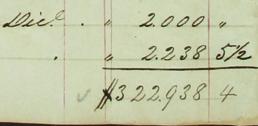 Dicl. . " 2.000 "
. " 2.238 5½
$322.938 4